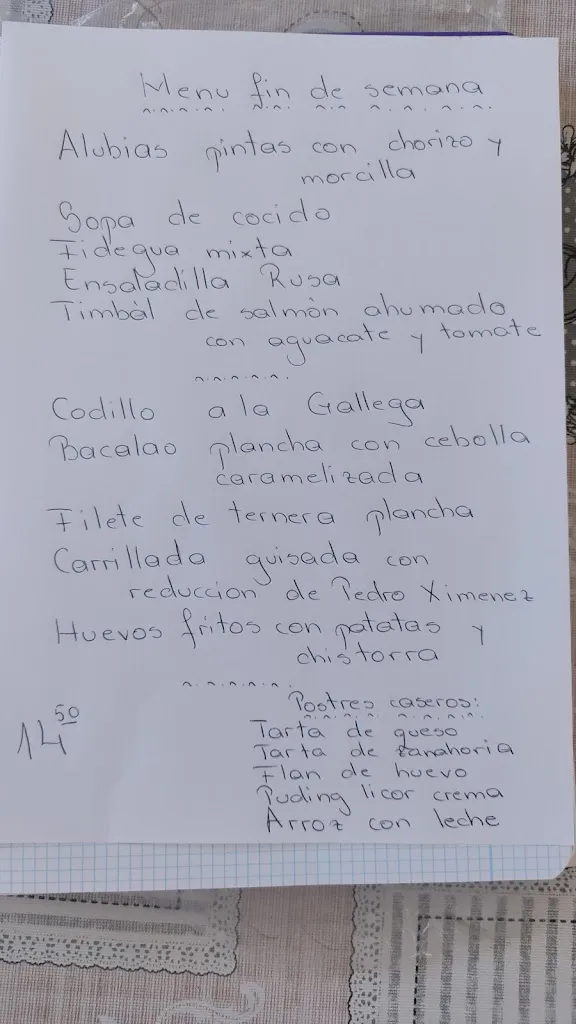 Menu fin de semana
Alubias pintas con chorizo y
morcilla
Sopa de cocido
Fidegua mixta
Ensaladilla Rusa
Timbàl de salmòn ahumado
con aguacate y tomate
Codillo a la Gallega
Bacalao plancha con cebolla
caramelizada
Filete de ternera plancha
Carrillada guisada con
reduccion de Pedro Ximenez
Huevos fritos con patatas y
chistorra
14 50
Postres caseros:
Tarta de queso
Tarta de zanahoria
Flan de huevo
Puding licor crema
Arroz con leche